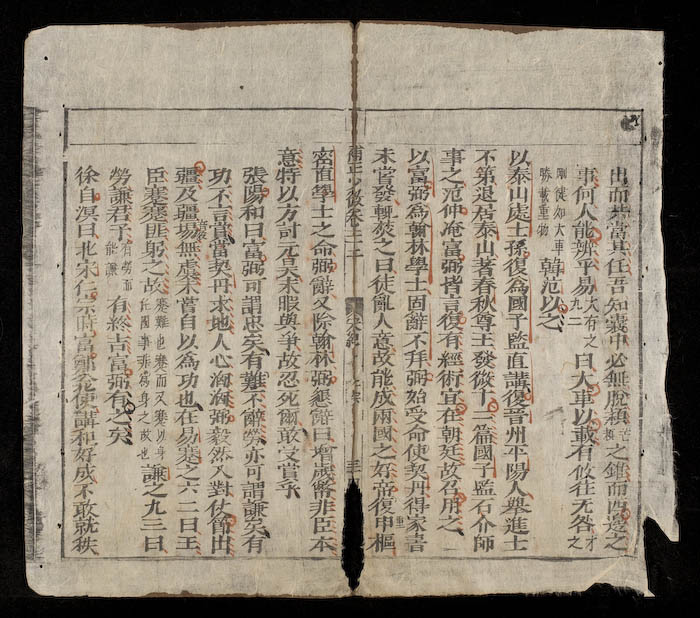 出而共當其任吾知囊中必無脫穎之錐而西邊之
事何人能辨平易大有之九二曰大車以載有攸往无咎才之
剛徒如大車勝載重物韓范以之
以泰山處士孫復爲國子監直講復晉州平陽人舉進士
不第退居泰山著春秋尊王發微十二篇國子監石介師
事之范仲淹富弼皆言復有經術宜在朝廷故召用之
以富弼爲翰林學士固辭不拜弼始受命使契丹得家書
未嘗發輒焚之曰徒亂人意故能成兩國之好帝復申樞
補正少微卷二十
宋紀
密直學士之命弼辭又除翰林弼懇辭曰增歲幣非臣本
意特以方討元昊未暇與爭故忍死爾敢受賞乎
張陽和曰富弼可謂忠矣有難不辭勞亦可謂謙矣有
功不言賞當契丹求地人心洶洶弼毅然入對仗節出
疆及疆埸無虞未嘗自以爲功也在易蹇之六二曰王
臣蹇蹇匪躬之故蹇難也蹇而又蹇以身任國事非爲身之故也謙之九三曰
勞謙君子有勞而能謙有終吉富弼有之矣
徐自溟曰北宋仁宗時富鄭公使講和好成不敢就秩